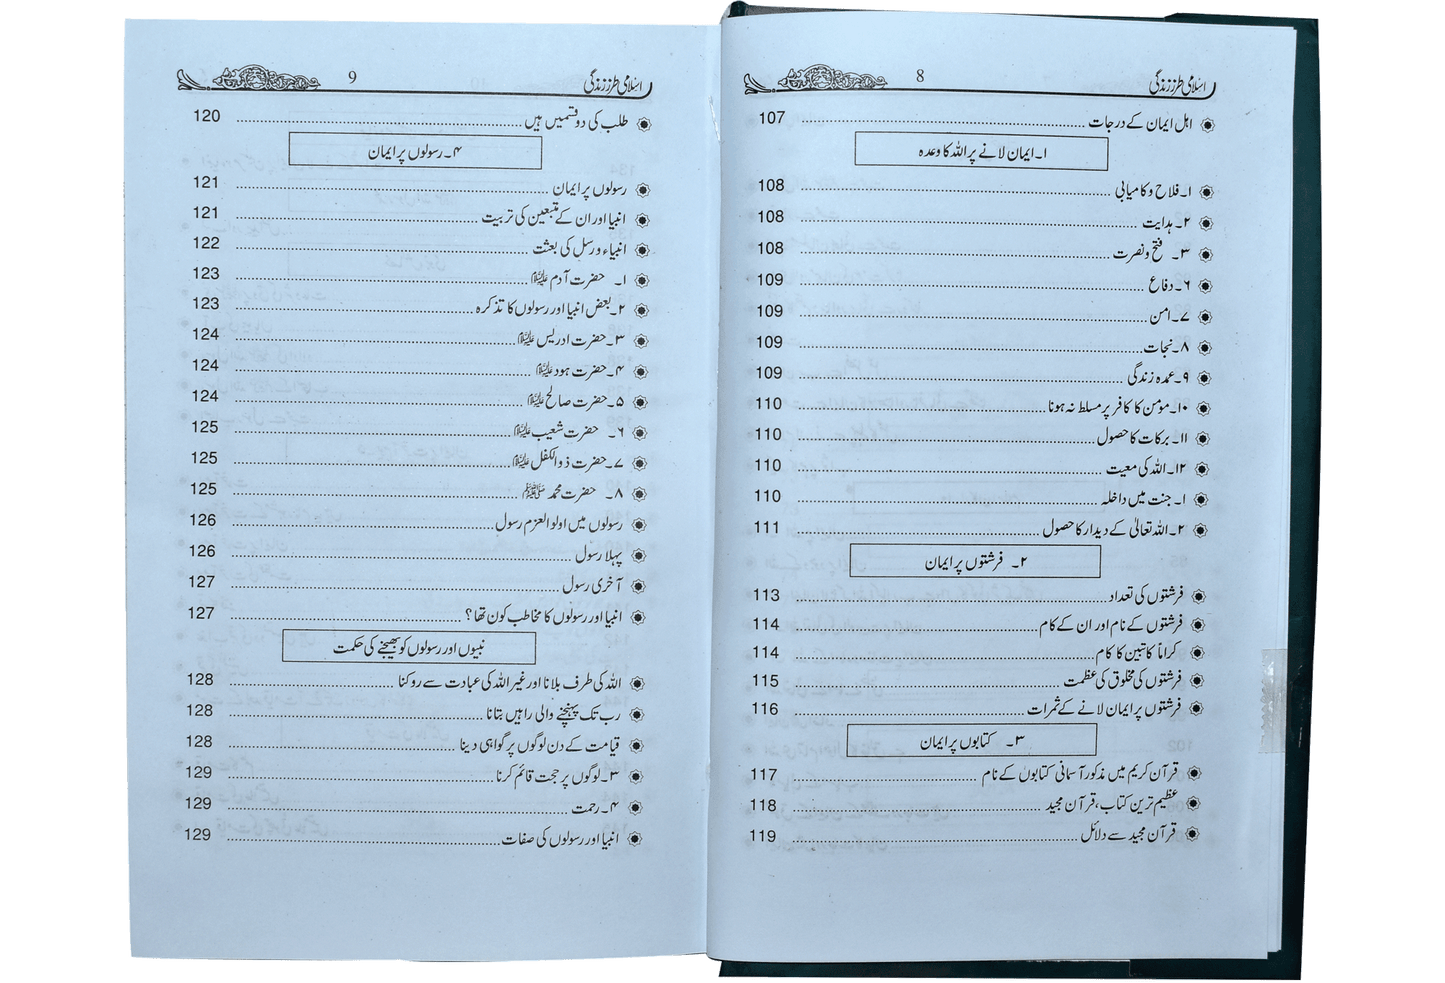 اسلامی طرز زندگی 8
اہل ایمان کے درجات 107
۱۔ ایمان لانے پر اللہ کا وعدہ
۱۔ فلاح و کامیابی 108
۲۔ ہدایت 108
۳۔ فتح و نصرت 108
۶۔ دفاع 109
۷۔ امن 109
۸۔ نجات 109
۹۔ عمدہ زندگی 109
۱۰۔ مؤمن کا کافر پر مسلط نہ ہونا 110
۱۱۔ برکات کا حصول 110
۱۲۔ اللہ کی معیت 110
۱۔ جنت میں داخلہ 110
۲۔ اللہ تعالیٰ کے دیدار کا حصول 111
۲۔ فرشتوں پر ایمان
فرشتوں کی تعداد 113
فرشتوں کے نام اور ان کے کام 114
کراماً کاتبین کا کام 114
فرشتوں کی مخلوق کی عظمت 115
فرشتوں پر ایمان لانے کے ثمرات 116
۳۔ کتابوں پر ایمان
قرآن کریم میں مذکور آسمانی کتابوں کے نام 117
عظیم ترین کتاب، قرآن مجید 118
قرآن مجید سے دلائل 119
اسلامی طرز زندگی 9
طلب کی دو قسمیں ہیں 120
۴۔ رسولوں پر ایمان
رسولوں پر ایمان 121
انبیا اور ان کے متبعین کی تربیت 121
انبیاء و رسل کی بعثت 122
۱۔ حضرت آدم علیہ السلام 123
۲۔ بعض انبیا اور رسولوں کا تذکرہ 123
۳۔ حضرت ادریس علیہ السلام 124
۴۔ حضرت ہود علیہ السلام 124
۵۔ حضرت صالح علیہ السلام 124
۶۔ حضرت شعیب علیہ السلام 125
۷۔ حضرت ذوالکفل علیہ السلام 125
۸۔ حضرت محمد ﷺ 125
رسولوں میں اولوالعزم رسول 126
پہلا رسول 126
آخری رسول 127
انبیا اور رسولوں کا مخاطب کون تھا؟ 127
نبیوں اور رسولوں کو بھیجنے کی حکمت
اللہ کی طرف بلانا اور غیر اللہ کی عبادت سے روکنا 128
رب تک پہنچنے والی راہیں بتانا 128
قیامت کے دن لوگوں پر گواہی دینا 128
۳۔ لوگوں پر حجت قائم کرنا 129
۴۔ رحمت 129
انبیا اور رسولوں کی صفات 129